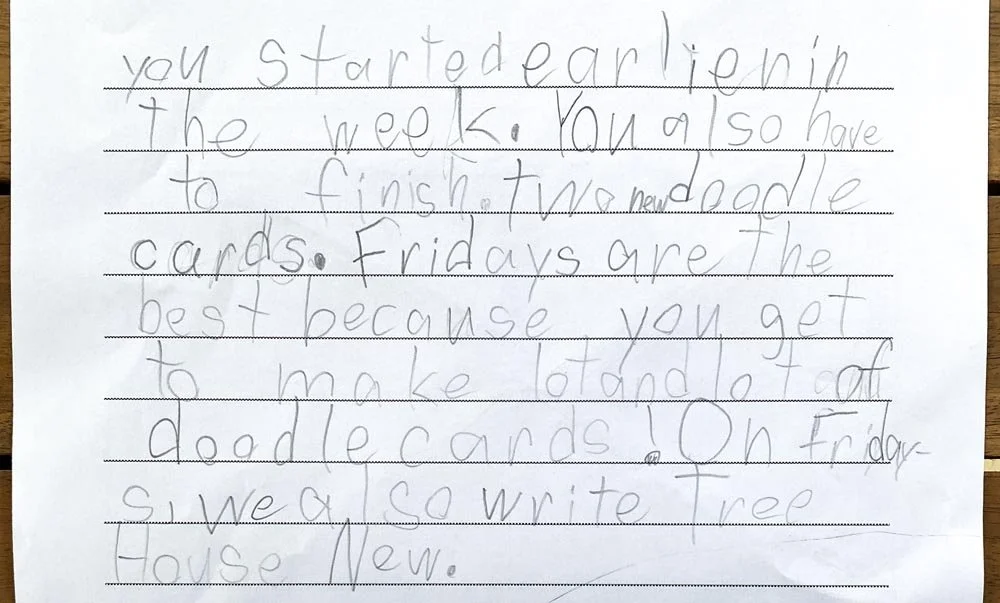 you started earlien in
the week. You also have
to finish. two new doodle
cards. Fridays are the
best because you get
to make lot and lot of
doodle cards! On Friday-
s, we also write Tree
House New.